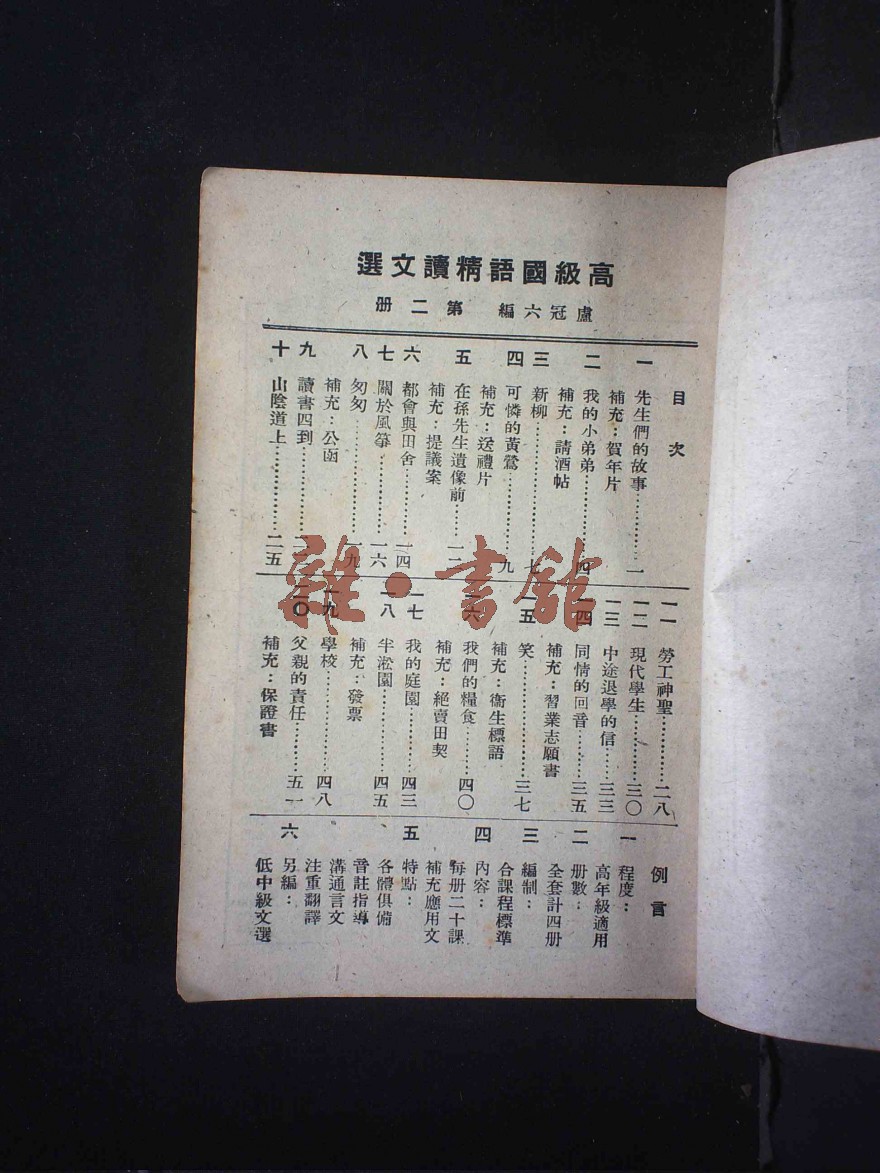 高級國語精讀文選
盧冠六編 第二册
目次
一 先生們的故事…………一
補充：賀年片
二 我的小弟弟…………四
補充：請酒帖
三 新柳…………七
四 可憐的黃鶯…………九
補充：送禮片
五 在孫先生遺像前……一二
補充：提議案
六 都會與田舍…………一四
七 關於風箏…………一六
八 匆匆…………一九
補充：公函
九 讀書四到…………二
十 山陰道上…………二五
一一 勞工神聖…………二八
一二 現代學生…………三〇
一三 中途退學的信……三三
一四 同情的回音…………三五
補充：習業志願書
一五 笑…………三七
補充：衞生標語
一六 我們的糧食…………四〇
補充：絕賣田契
一七 我的庭園…………四三
一八 半淞園…………四五
補充：發票
一九 學校…………四八
二〇 父親的責任…………五一
補充：保證書
例言
一 程度：
高年級適用
二 册數：
全套計四册
三 編制：
合課程標準
四 內容：
每册二十課
補充應用文
五 特點：
各體俱備
音註指導
溝通言文
注重翻譯
六 另編：
低中級文選
雜·書館